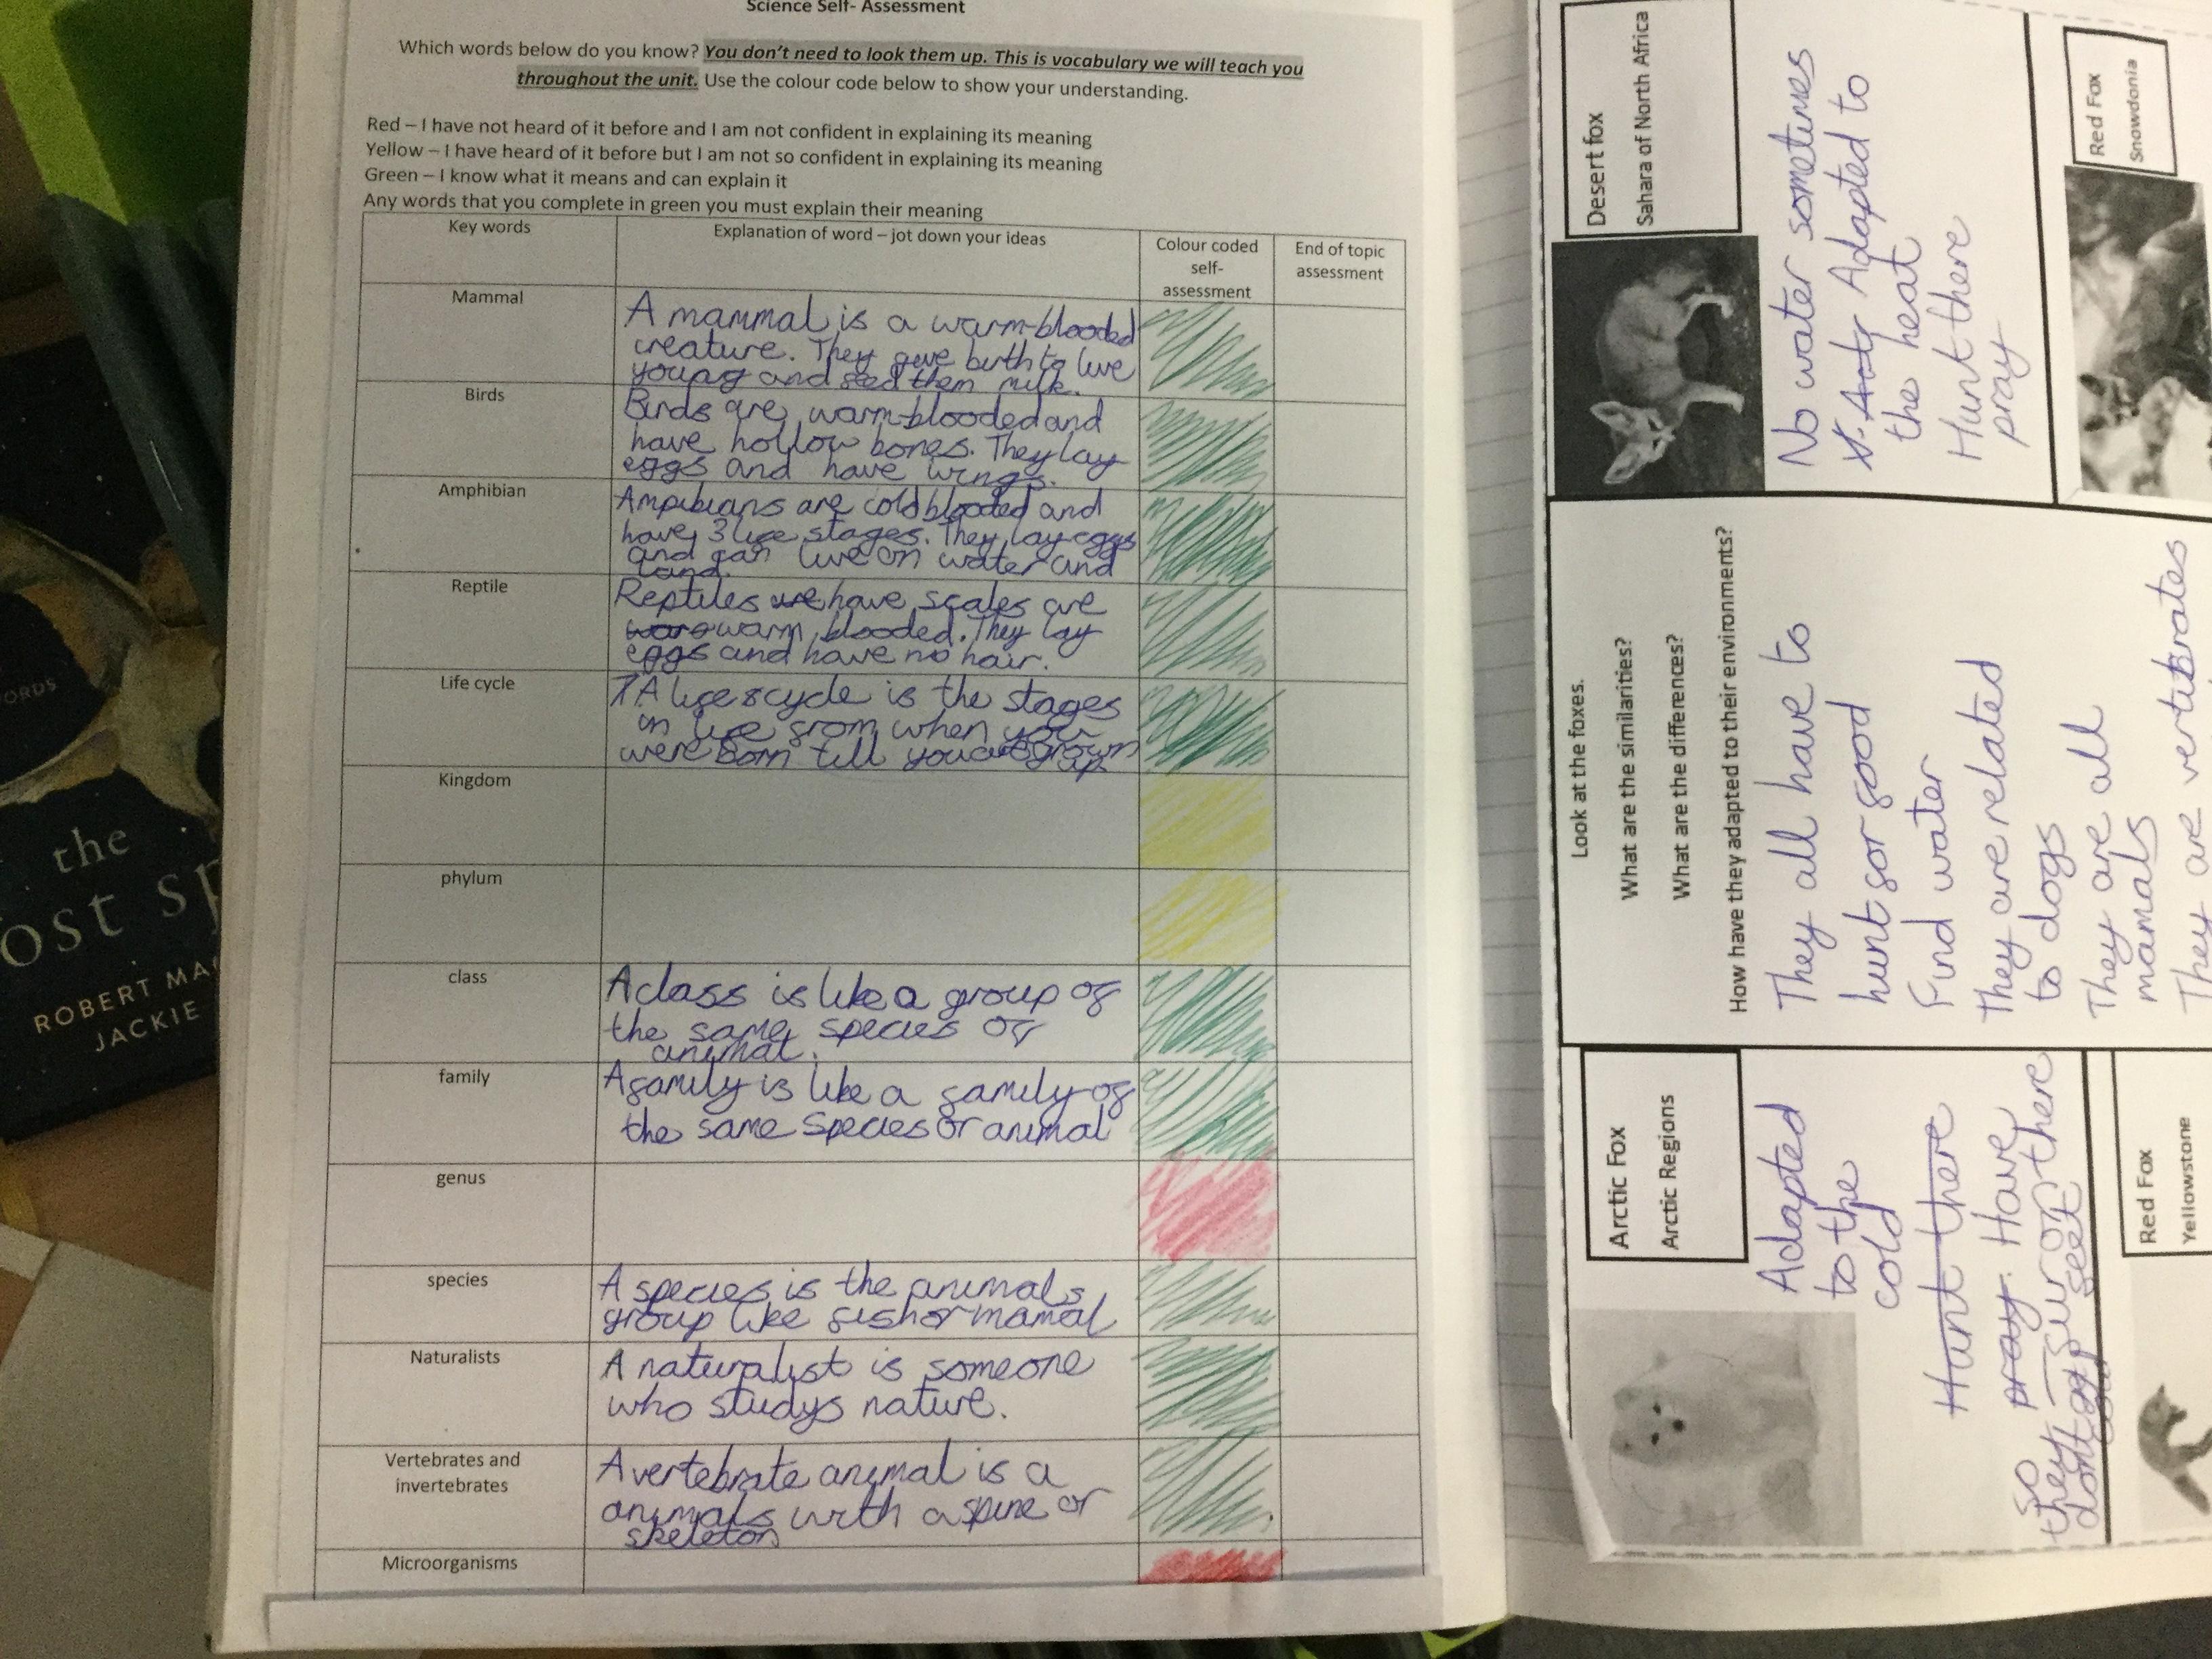 Science Self- Assessment
Which words below do you know? You don't need to look them up. This is vocabulary we will teach you
throughout the unit. Use the colour code below to show your understanding.
Red – I have not heard of it before and I am not confident in explaining its meaning
Yellow – I have heard of it before but I am not so confident in explaining its meaning
Green – I know what it means and can explain it
Any words that you complete in green you must explain their meaning
Key words
Explanation of word – jot down your ideas
Colour coded
self-
assessment
End of topic
assessment
Mammal
A mammal is a warm-blooded
creature. They give birth to live
young and feed them milk.
Birds
Birds are warm-blooded and
have hollow bones. They lay
eggs and have wings.
Amphibian
Ampibians are cold blooded and
have 3 life stages. They lay eggs
and can live on water and
land.
Reptile
Reptiles have scales are
warm blooded. They lay
eggs and have no hair.
Life cycle
A life cycle is the stages
in life from when you
were born till you are grown
up
Kingdom
phylum
class
A class is like a group of
the same species of
animal.
family
A family is like a family of
the same species or animal
genus
species
A species is the animals
group like fish or mamal
Naturalists
A naturalist is someone
who studys nature.
Vertebrates and
invertebrates
A vertebrate animal is a
animals with a spine or
skeleton
Microorganisms
Desert fox
Sahara of North Africa
No water sometimes
Adapted to
the heat
Hunt there
pray
Red Fox
Snowdonia
Look at the foxes.
What are the similarities?
What are the differences?
How have they adapted to their environments?
They all have to
hunt for food
Find water
They are related
to dogs
They are all
mamals
They are vertebrates
Arctic Fox
Arctic Regions
Adapted
to the
cold
Hunt there
pray. Have
fur on there
so they feet
dont get
cold
Red Fox
Yellowstone
ORDS
the
ost sp
ROBERT MA
JACKIE